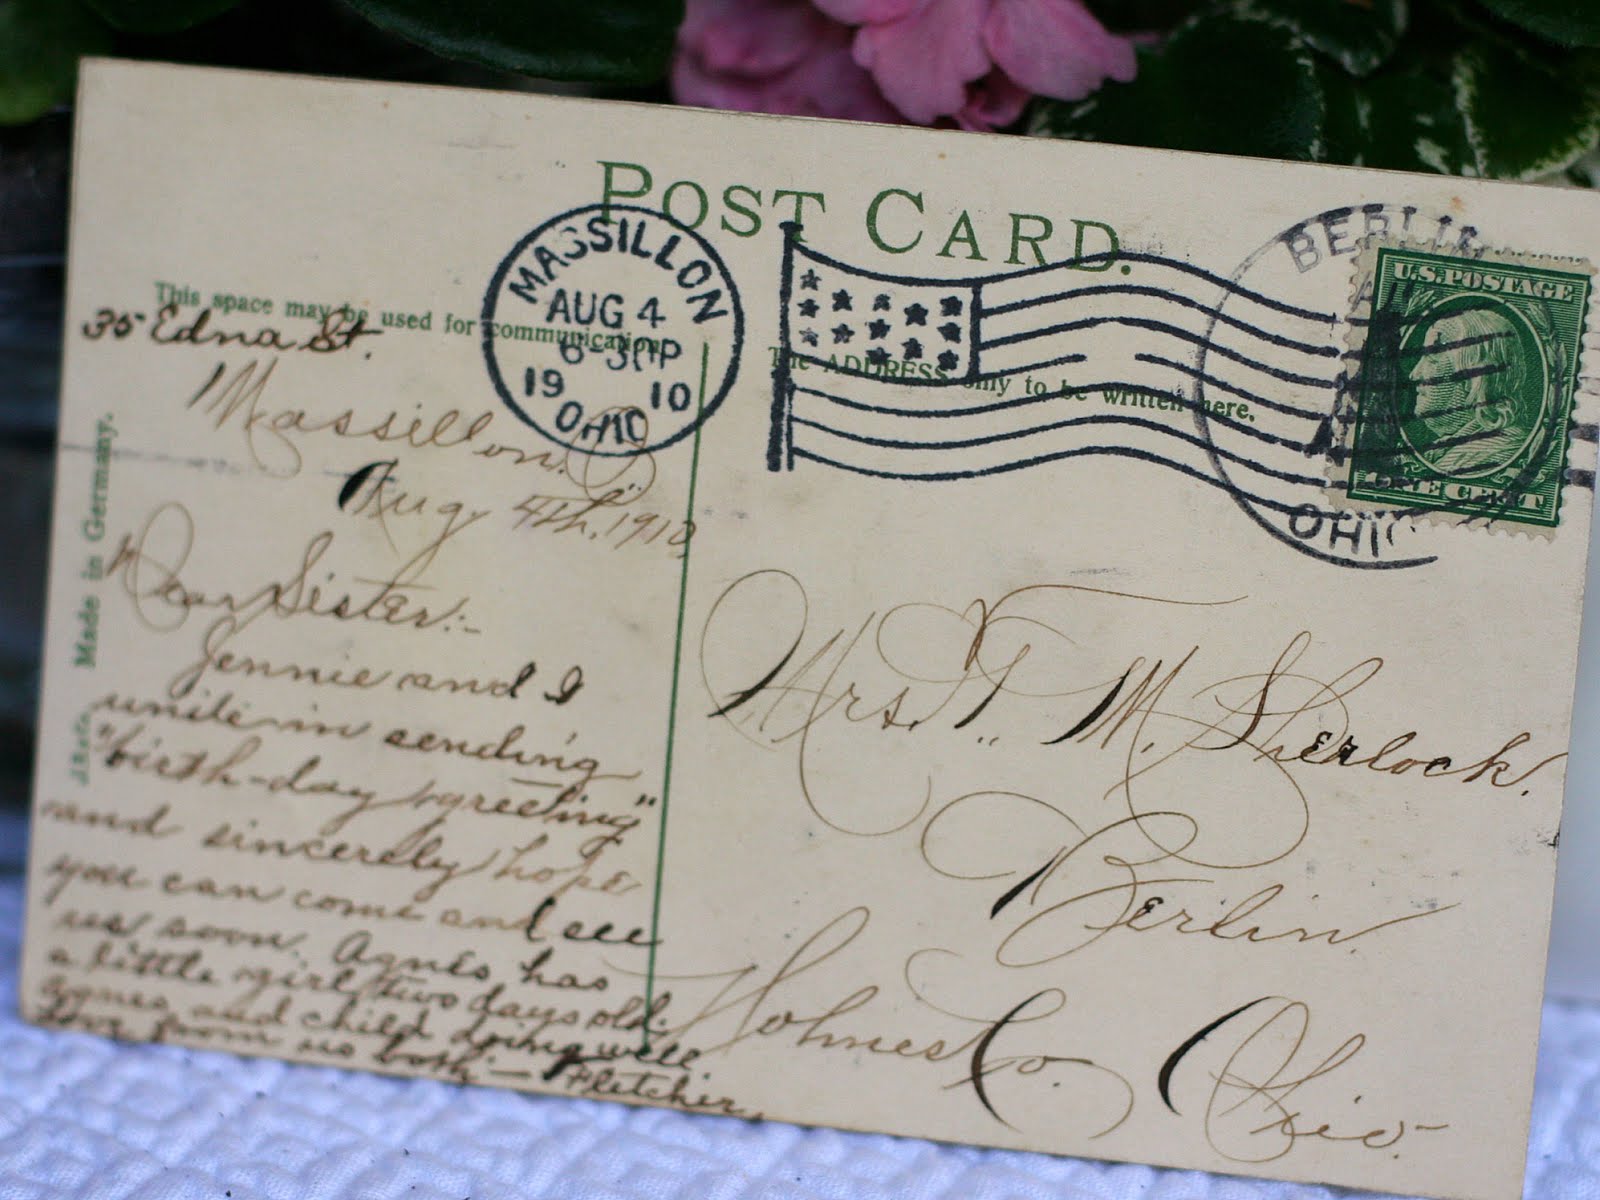 POST CARD.
This space may be used for communication.
The ADDRESS only to be written here.
MASSILLON
AUG 4
6-30P
1910
OHIO
BERLIN
OHIO
U.S. POSTAGE
ONE CENT
Made in Germany.
35 Edna St.
Massillon, O.
Aug. 4th, 1910
Dear Sister:-
Jennie and I
unite in sending
"birth-day greeting"
and sincerely hope
you can come and see
us soon. Agnes has
a little girl two days old.
Agnes and child doing well
Love from us both — Fletcher.
Mrs. T. M. Sherlock.
Berlin.
Holmes Co.
Ohio-